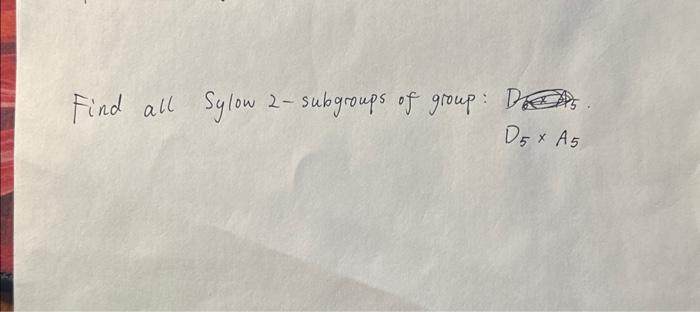 Find all Sylow 2-subgroups of group:
D₅ × A₅